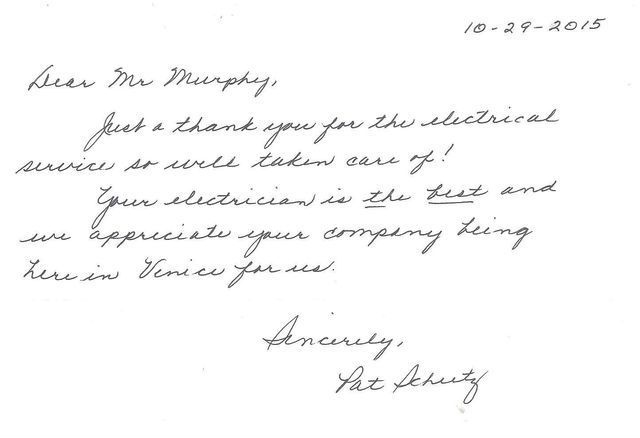 10-29-2015
Dear Mr Murphy,
Just a thank you for the electrical
service so well taken care of!
Your electrician is the best and
we appreciate your company being
here in Venice for us.
Sincerely,
Pat Schutz